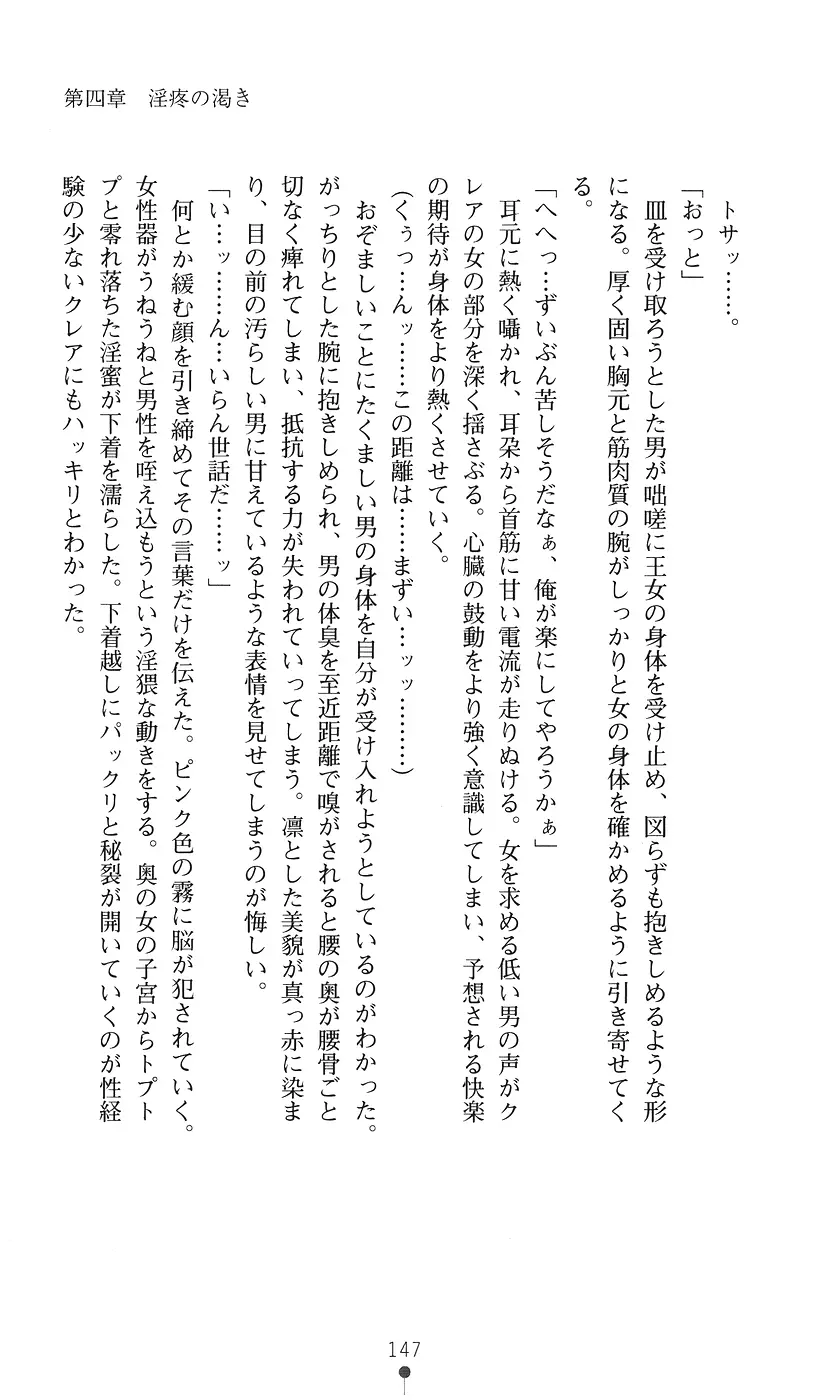 第四章　淫疼の渇き
トサッ……。
「おっと」
皿を受け取ろうとした男が咄嗟に王女の身体を受け止め、図らずも抱きしめるような形
になる。厚く固い胸元と筋肉質の腕がしっかりと女の身体を確かめるように引き寄せてく
る。
「へへっ…ずいぶん苦しそうだなぁ、俺が楽にしてやろうかぁ」
耳元に熱く囁かれ、耳朶から首筋に甘い電流が走りぬける。女を求める低い男の声がク
レアの女の部分を深く揺さぶる。心臓の鼓動をより強く意識してしまい、予想される快楽
の期待が身体をより熱くさせていく。
（くぅっ…んッ……この距離は……まずい…ッッ………）
おぞましいことにたくましい男の身体を自分が受け入れようとしているのがわかった。
がっちりとした腕に抱きしめられ、男の体臭を至近距離で嗅がされると腰の奥が腰骨ごと
切なく痺れてしまい、抵抗する力が失われていってしまう。凛とした美貌が真っ赤に染ま
り、目の前の汚らしい男に甘えているような表情を見せてしまうのが悔しい。
「い…ッ……ん…いらん世話だ……ッ」
何とか緩む顔を引き締めてその言葉だけを伝えた。ピンク色の霧に脳が犯されていく。
女性器がうねうねと男性を咥え込もうという淫猥な動きをする。奥の女の子宮からトプト
プと零れ落ちた淫蜜が下着を濡らした。下着越しにパックリと秘裂が開いていくのが性経
験の少ないクレアにもハッキリとわかった。
147